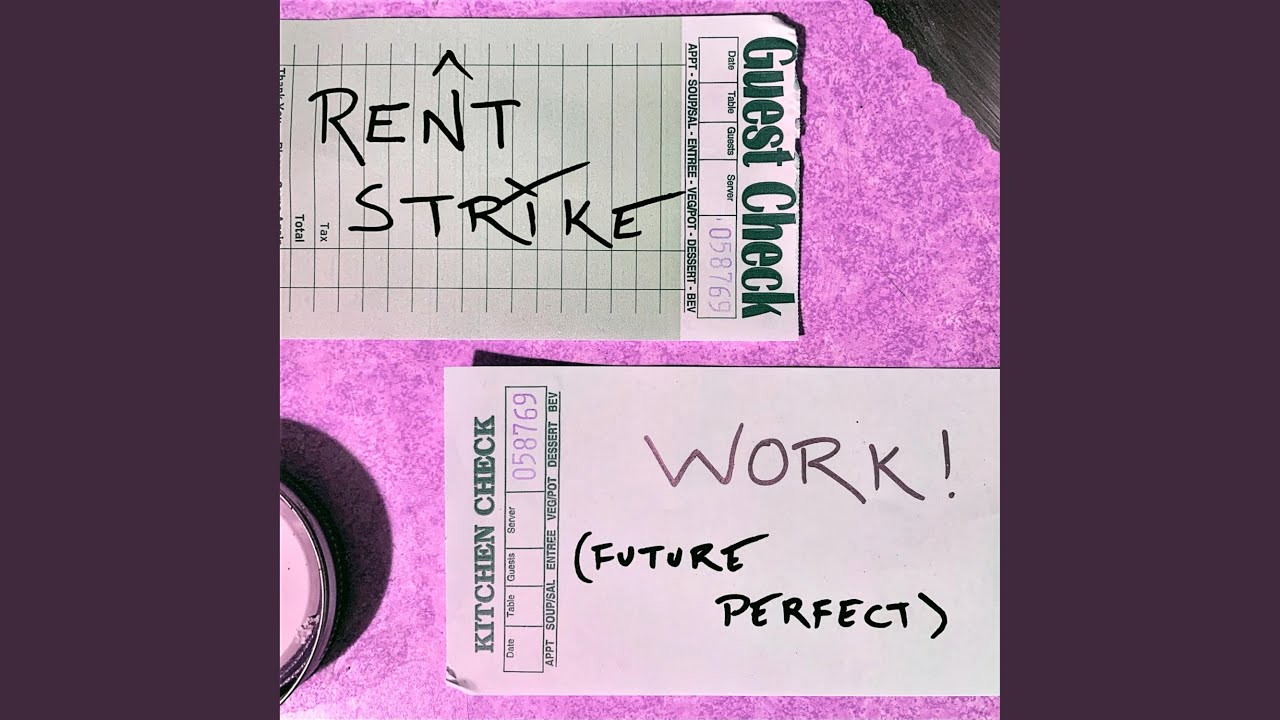 RENT
STRIKE
Guest Check
Date Table Guests Server
058769
APPT - SOUP/SAL - ENTREE - VEG/POT - DESSERT - BEV
Tax
Total
WORK!
(FUTURE
PERFECT)
KITCHEN CHECK
Date Table Guests Server
058769
APPT SOUP/SAL ENTREE VEG/POT DESSERT BEV